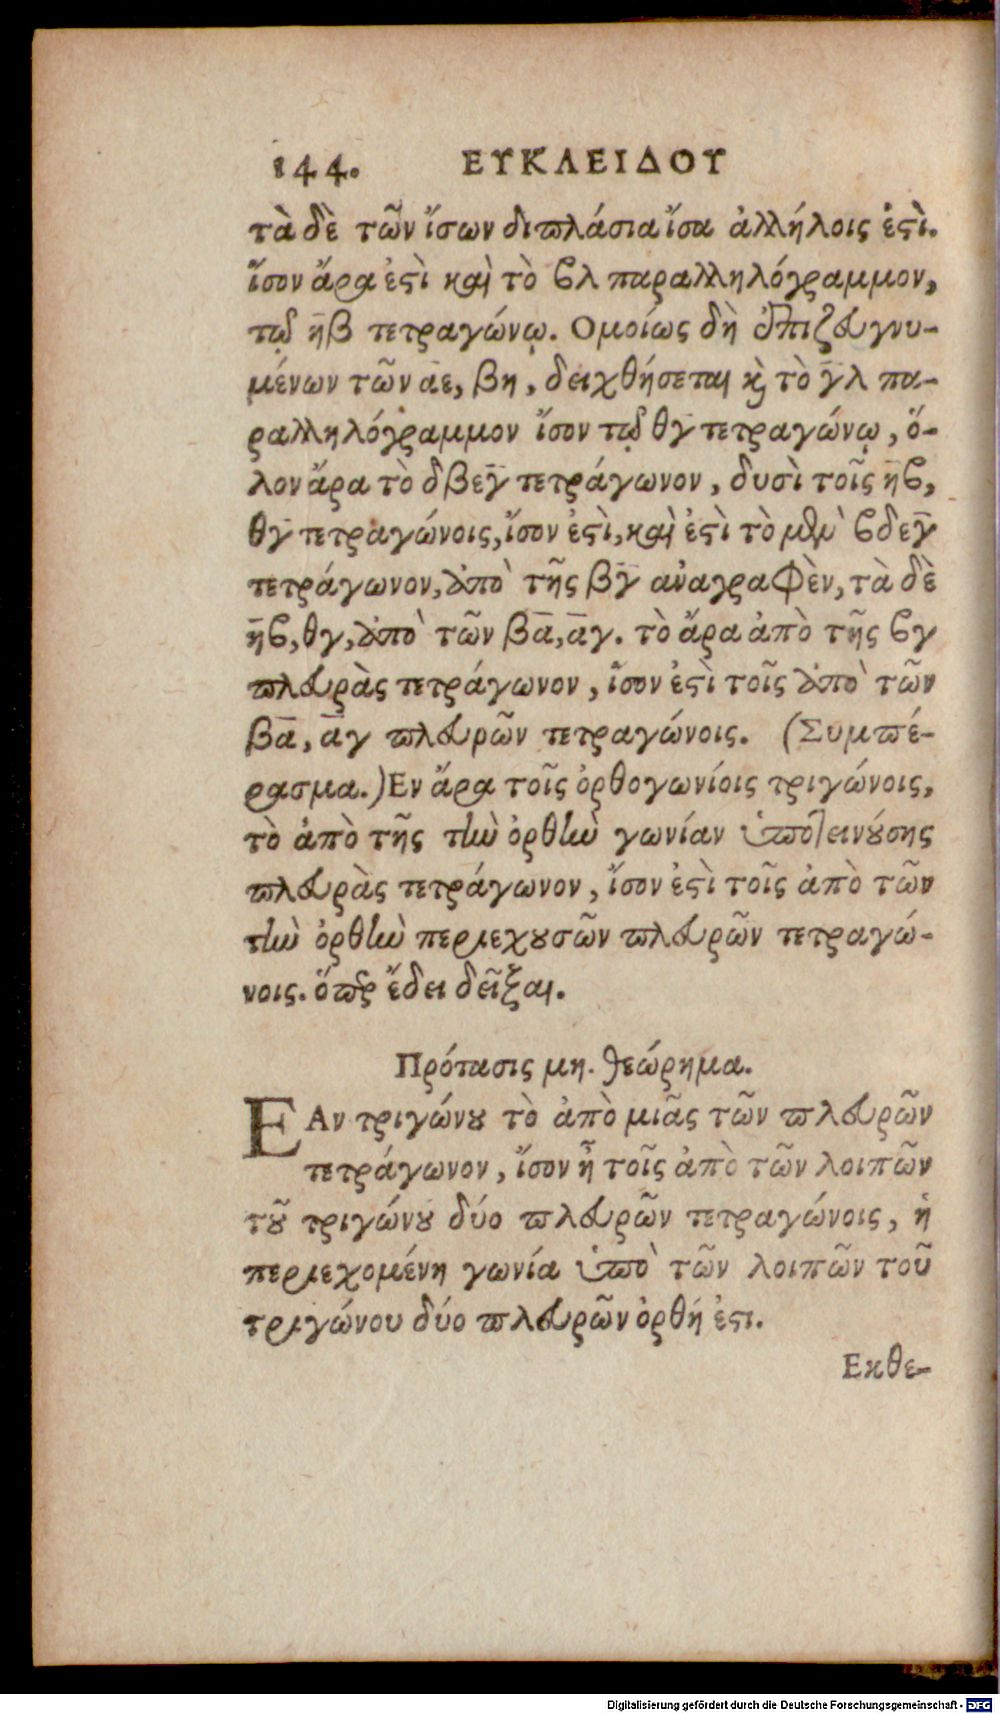 144. ΕΥΚΛΕΙΔΟΥ
τὰ δὲ τῶν ἴσων διπλάσια ἴσα ἀλλήλοις ἐςὶ.
ἴσον ἄρα ἐςὶ καὶ τὸ βλ παραλληλόγραμμον,
τῷ η̄β τετραγώνῳ. Ομοίως δὴ ἐπιζευγνυ-
μένων τῶν α̅ε, βη, δειχθήσεται κ̀ τὸ γ̄λ πα-
ραλληλόγραμμον ἴσον τῷ θγ̄ τετραγώνῳ, ὅ-
λον ἄρα τὸ δβεγ̄ τετράγωνον, δυσὶ τοῖς η̄β,
θγ̄ τετραγώνοις, ἴσον ἐςὶ, καὶ ἐςὶ τὸ μὲν βδεγ̄
τετράγωνον, ἀπὸ τῆς βγ̄ ἀναγραφὲν, τὰ δὲ
η̄β, θγ, ἀπὸ τῶν βᾱ, ᾱγ. τὸ ἄρα ἀπὸ τῆς βγ
πλευρὰς τετράγωνον, ἴσον ἐςὶ τοῖς ἀπὸ τῶν
βᾱ, ᾱγ πλευρῶν τετραγώνοις. (Συμπέ-
ρασμα.) Εν ἄρα τοῖς ὀρθογωνίοις τριγώνοις,
τὸ ἀπὸ τῆς τὴν ὀρθὴν γωνίαν ὑποτεινούσης
πλευρὰς τετράγωνον, ἴσον ἐςὶ τοῖς ἀπὸ τῶν
τὴν ὀρθὴν περιεχουσῶν πλευρῶν τετραγώ-
νοις. ὅπερ ἔδει δεῖξαι.
Πρότασις μη. θεώρημα.
ΕΑν τριγώνου τὸ ἀπὸ μιᾶς τῶν πλευρῶν
τετράγωνον, ἴσον ᾖ τοῖς ἀπὸ τῶν λοιπῶν
τοῦ τριγώνου δύο πλευρῶν τετραγώνοις, ἡ
περιεχομένη γωνία ὑπὸ τῶν λοιπῶν τοῦ
τριγώνου δύο πλευρῶν ὀρθή ἐςι.
Εκθε-
Digitalisierung gefördert durch die Deutsche Forschungsgemeinschaft - DFG